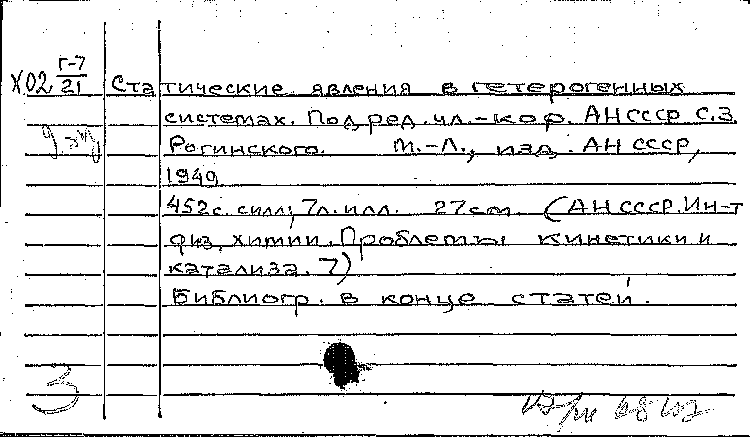 Х02 Г-7/21 Статические явления в гетерогенных
системах. Под ред. чл.-кор. АН СССР С.З.
Рогинского. М.-Л., изд. АН СССР,
1949
452с. силл; 7л. илл. 27 cm. (АН СССР. Ин-т
физ. химии. Проблемы кинетики и
катализа. 7)
Библиогр. в конце статей.
3